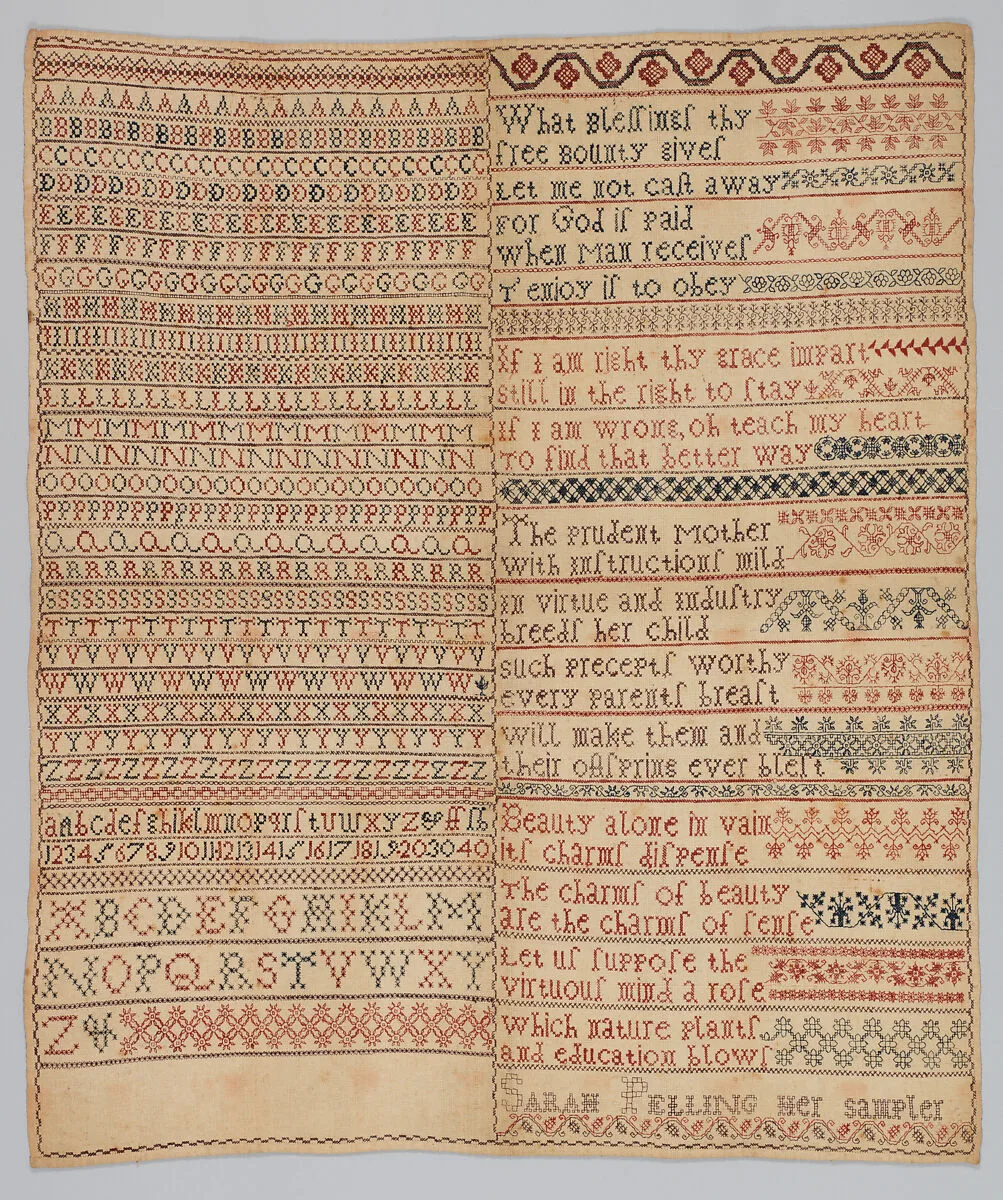 AAAAAAAAAAAAAAAAAAAAAAAA
BBBBBBBBBBBBBBBBBBBBBBBBBBBBBB
CCCCCCCCCCCCCCCCCCCCCCCC
DDDDDDDDDDDDDDDDDDDDDDDDD
EEEEEEEEEEEEEEEEEEEEEEEEE
FFFFFFFFFFFFFFFFFFFFFFFFF
GGGGGGGGGGGGGGGGGGGGGG
HHHHHHHHHHHHHHHHHHHHHHHHHHHH
IIIIIIIIIIIIIIIIIIIIIIIIIIIIII
KKKKKKKKKKKKKKKKKKKKKKKKKKKK
LLLLLLLLLLLLLLLLLLLLLLLL
MMMMMMMMMMMMMMMMM
NNNNNNNNNNNNNNNNN
OOOOOOOOOOOOOOOOOOOOOOOOO
PPPPPPPPPPPPPPPPPPPPPPPPPPP
QQQQQQQQQQQQQQQQQ
RRRRRRRRRRRRRRRRRRRRRRRRR
SSSSSSSSSSSSSSSSSSSSSSSSSSSSSSSSSSSS
TTTTTTTTTTTTTTTTTTTTTTTT
VVVVVVVVVVVVVVVVVVVVVV
WWWWWWWWWWWWWWWW
XXXXXXXXXXXXXXXXXXXXXX
YYYYYYYYYYYYYYYYYYYYYY
ZZZZZZZZZZZZZZZZZZZZZ
aabcdefghiklmnopqrſtuwxyz & ff ſb
1 2 3 4 5 6 7 8 9 10 11 12 13 14 15 16 17 18 19 20 30 40
A B C D E F G H I K L M
N O P Q R S T V W X Y
Z &
What bleſſingſ thy
free bounty giveſ
Let me not caſt away
For God iſ paid
When Man receiveſ
T enjoy iſ to obey
If I am right thy grace impart
still in the right to ſtay
if I am wrong, oh teach my heart
To find that better way
The prudent Mother
with inſtructionſ mild
in virtue and induſtry
breedſ her child
such preceptſ worthy
every parentſ breaſt
will make them and
their offspring ever bleſt
Beauty alone in vain
itſ charmſ diſpenſe
The charmſ of beauty
are the charmſ of ſenſe
Let uſ ſuppoſe the
virtuouſ mind a roſe
Which nature plantſ
and education blowſ
SARAH PELLING Her sampler